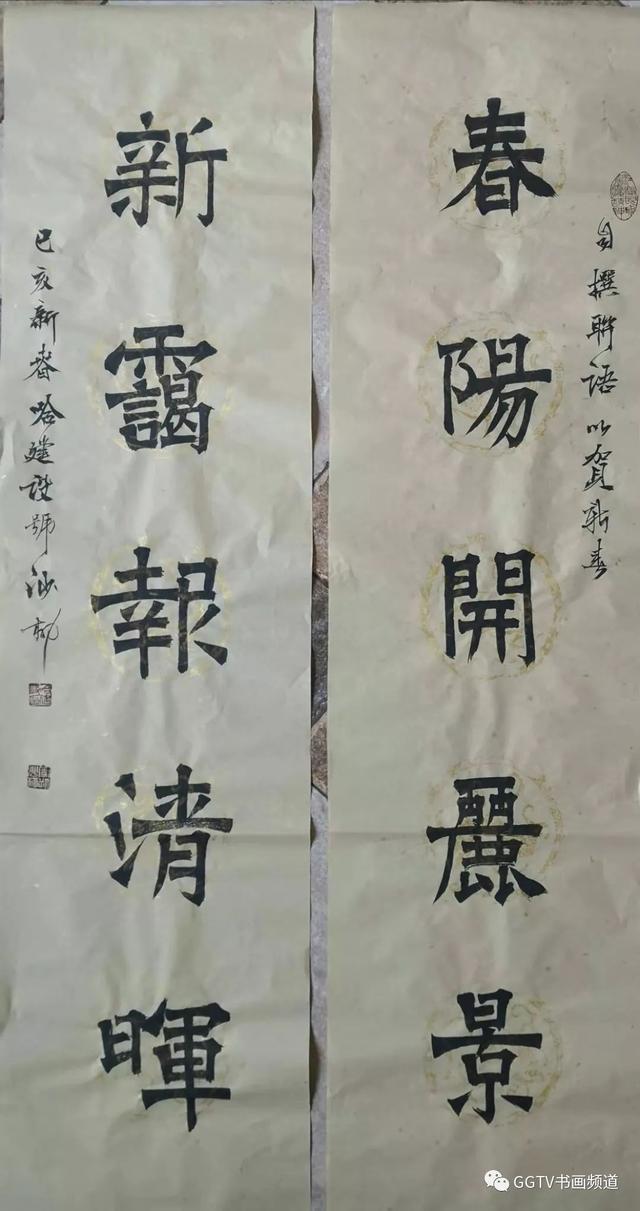 春陽開麗景
自撰聯语以贺新春
新靄報清暉
己亥新春哈建设號
GGTV书画频道